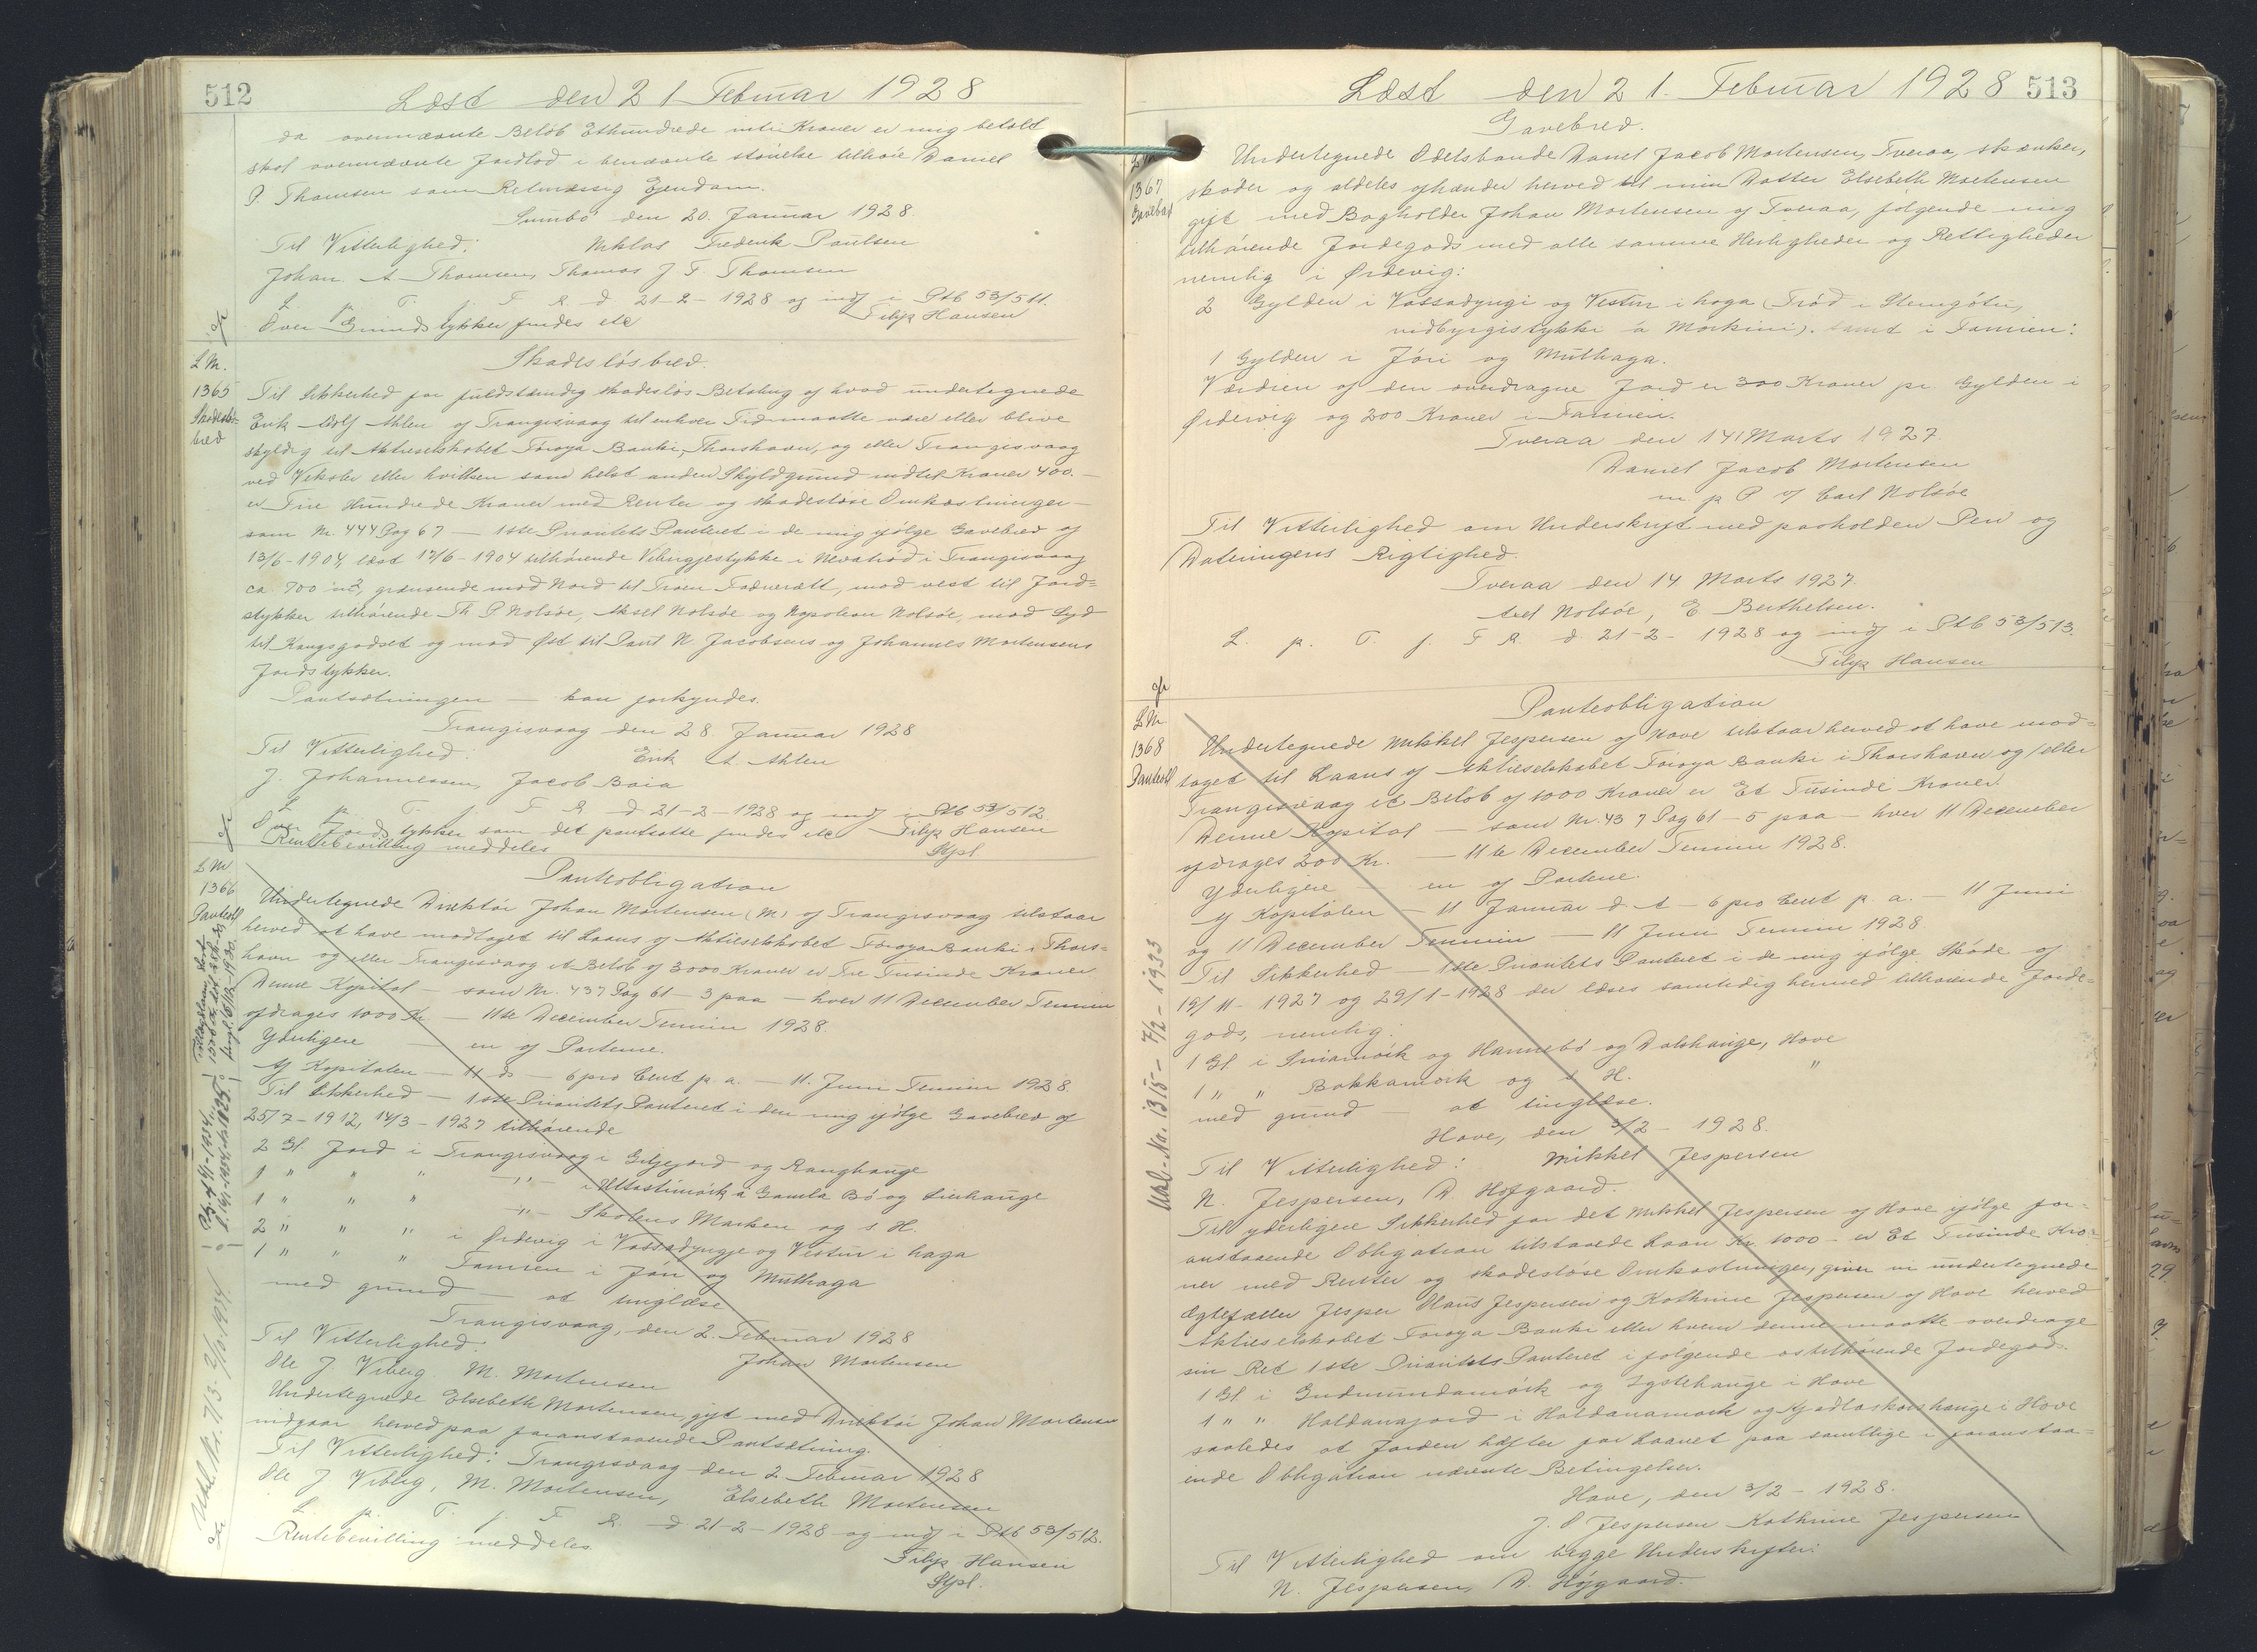 512
Læst den 21 Februar 1928
da ovennævnte Beløb Ethundrede Kroner er mig betalt
skal ovennævnte Jordlod i benævnte størrelse tilhøre Daniel
P. Thomsen som Retmæssig Ejendom.
Sumbø den 20. Januar 1928.
Til Vitterlighed: Niklas Frederik Paulsen
Johan A Thomsen, Thomas J F. Thomsen
L p. T. f. F R. d. 21-2-1928 og indf i Ptb 53/511.
Over Grundstykker findes etc Filip Hansen
L No.
1365
Skadesløsbrev
Skadesløsbrev.
Til Sikkerhed for fuldstændig skadesløs Betaling af hvad undertegnede
Erik Adolf Ahlen af Trangisvaag til enhver Tid maatte være eller blive
skyldig til Aktieselskabet Føroya Banki, Thorshavn, og eller Trangisvaag
ved Veksler eller hvilken som helst anden Skyldgrund indtil Kroner 400.-
er Fire Hundrede Kroner med Renter og skadesløse Omkostninger-
som Nr. 444 Pag 67 - 1ste Prioritets Panteret i de mig ifølge Gavebrev af
13/6-1904, læst 17/6-1904 tilhørende Vibergjestykke i Nevatrød i Trangisvaag
ca. 700 m2, grænsende mod Nord til, mod vest til Jord=
stykker tilhørende Th. P Nolsøe, Aksel Nolsøe og Napoleon Nolsøe, mod Syd
til Kongsgodset og mod Øst til Poul N. Jacobsens og Johannes Mortensens
Jordstykker.
Pantsætningen - kan forkyndes.
Trangisvaag den 28. Januar 1928
Til Vitterlighed: Erik A. Ahlen
J. Johannessen, Jacob Baia
L p. T. f. F R d 21-2-1928 og indf i Ptb 53/512.
Over Jordstykker som det pantsatte findes etc Filip Hansen
Rentebevilling meddeles Kpl.
L No
1366
Panteobl
Panteobligation
Undertegnede Direktør Johan Mortensen (M) af Trangisvaag tilstaar
herved at have modtaget til Laans af Aktieselskabet Føroya Banki i Thors=
havn og eller Trangisvaag et Beløb af 3000 Kroner er Tre Tusinde Kroner
Denne Kapital - som Nr. 437 Pag 61 - 3 paa - hver 11 December Termin
afdrages 1000 Kr - 11te December Termin 1928.
Yderligere - en af Parterne.
Af Kapitalen - 11 ds - 6 pro Cent p. a. - 11. Juni Termin 1928
Til Sikkerhed - 1ste Prioritets Panteret i den mig ifølge Gavebrev af
25/7-1912, 14/3-1927 tilhørende
2 Gl. Jord i Trangisvaag i Giljejord og Ranghange
1 " " " -"- i a Gamla Bø og
1 " " " -"- Skolens Marken og s H.
2 " " " i Ørdevig i Vassadyngje og Vestur i haga
1 " " " Famien i Jøri og Mulhaga
med grund - at tinglæse
Trangisvaag, den 2. Februar 1928
Til Vitterlighed: Johan Mortensen
Ole J. Viberg M. Mortensen
Undertegnede Elsebeth Mortensen, gift med Direktør Johan Mortensen
indgaar herved paa foranstaaende Pantsætning.
Til Vitterlighed: Trangisvaag den 2. Februar 1928
Ole J Viberg, M. Mortensen, Elsebeth Mortensen
L. p. T. f. F R. d 21-2-1928 og indf i Ptb 53/512.
Rentebevilling meddeles Filip Hansen
Kpl.
Læst den 21. Februar 1928
513
L No
1367
Gavebrev
Gavebrev.
Undertegnede Odelsbonde Daniel Jacob Mortensen, Tveraa, skænker,
skøder og aldeles afhænder herved til min Datter Elsebeth Mortensen
gift med Bogholder Johan Mortensen af Tveraa, følgende mig
tilhørende Jordegods med alle samme Herligheder og Rettigheder
nemlig i Ørdevig:
2 Gylden i Vassadyngi og Vestur i haga (Trød i Steingøtu,
vidbyrgistykki a Morkini). samt i Famien:
1 Gylden i Jøri og Mulhaga.
Værdien af den overdragne Jord er 300 Kroner pr Gylden i
Ørdevig og 200 Kroner i Famien.
Tveraa den 14 Marts 1927.
Daniel Jacob Mortensen
m. f. P v/ Carl Nolsøe
Til Vitterlighed om Underskrift med paaholden Pen og
Dateringens Rigtighed.
Tveraa den 14. Marts 1927.
Axel Nolsøe, E. Berthelsen.
L. p. T. f. F R d 21-2-1928 og indf i Ptb 53/513.
Filip Hansen
L No
1368
Panteobl
Panteobligation
Undertegnede Mikkel Jespersen af Hove tilstaar herved at have mod=
taget til Laans af Aktieselskabet Føroya Banki i Thorshavn og/eller
Trangisvaag et Beløb af 1000 Kroner er Et Tusinde Kroner.
Denne Kapital - som Nr. 437 Pag 61 - 5 paa - hver 11 December
afdrages 200 Kr. - 11te December Termin 1928.
Yderligere - en af Parterne.
Af Kapitalen - 11 Januar d. A - 6 pro Cent p. a. - 11 Juni
og 11 December Termin - 11 Juni Termin 1928
Til Sikkerhed - 1ste Prioritets Panteret i de mig ifølge Skøde af
19/11-1927 og 29/1-1928 der læses samtidig hermed tilhørende Jorde=
gods, nemlig:
1 Gl i og Hannebø og Dalshange, Hove
1 " " Bakkamork og s H. "
med grund - at tinglæse.
Hove, den 3/2-1928.
Til Vitterlighed: Mikkel Jespersen
N. Jespersen, D. Højgaard.
Til yderligere Sikkerhed for det Mikkel Jespersen af Hove ifølge for=
anstaaende Obligation tilstaaede Laan Kr. 1000 - er Et Tusinde Kro=
ner med Renter og skadesløse Omkostninger, giver vi undertegnede
Ægtefæller Jesper Hans Jespersen og Kathrine Jespersen af Hove herved
Aktieselskabet Føroya Banki eller hvem denne maatte overdrage
sin Ret 1ste Prioritets Panteret i følgende os tilhørende Jordegods.
1 Gl i Gudmundamørk og i Hove
1 " " Haldanajord i Haldanamørk og i Hove
saaledes at Jorden hæfter for Laanet paa samtlige i foranstaa=
ende Obligation nævnte Betingelser.
Hove, den 3/2-1928.
J. Jespersen Kathrine Jespersen
Til Vitterlighed om begge Underskrifter:
N. Jespersen, D. Højgaard.
Ukl. No. 1315 - 7/2-1933